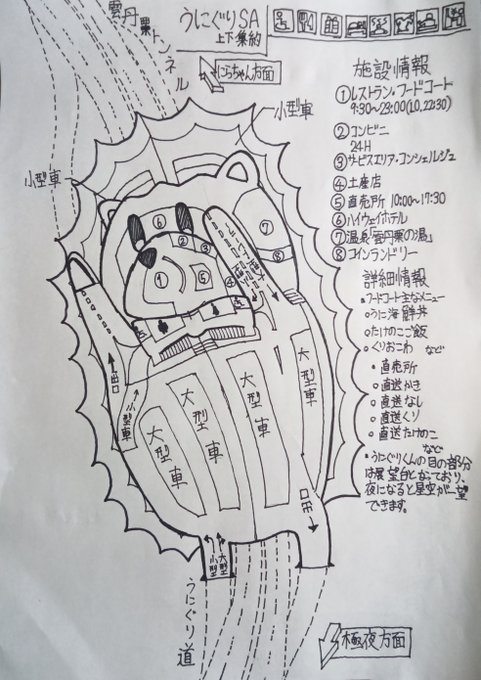 雲丹栗トンネル
うにぐりSA
上下集約
にらちゃん方面
小型車
小型車
施設情報
①レストラン・フードコート
9:30~23:00(LO.22:30)
②コンビニ
24H
③サービスエリア・コンシェルジュ
④土産店
⑤直売所 10:00~17:30
⑥ハイウェイホテル
⑦温泉「雲丹栗の湯」
⑧コインランドリー
詳細情報
・フードコート主なメニュー
○うに海鮮丼
○たけのこご飯
○くりおこわ など
・直売所
○直送かき
○直送なし
○直送くり
○直送たけのこ
など
・うにぐりくんの目の部分
は展望台となっており、
夜になると星空が一望
できます。
⑥
⑦
②
③
④
⑧
①
⑤
出口
小型車
大型車
大型車
大型車
大型車
出口
小型
大型
うにぐり道
極夜方面